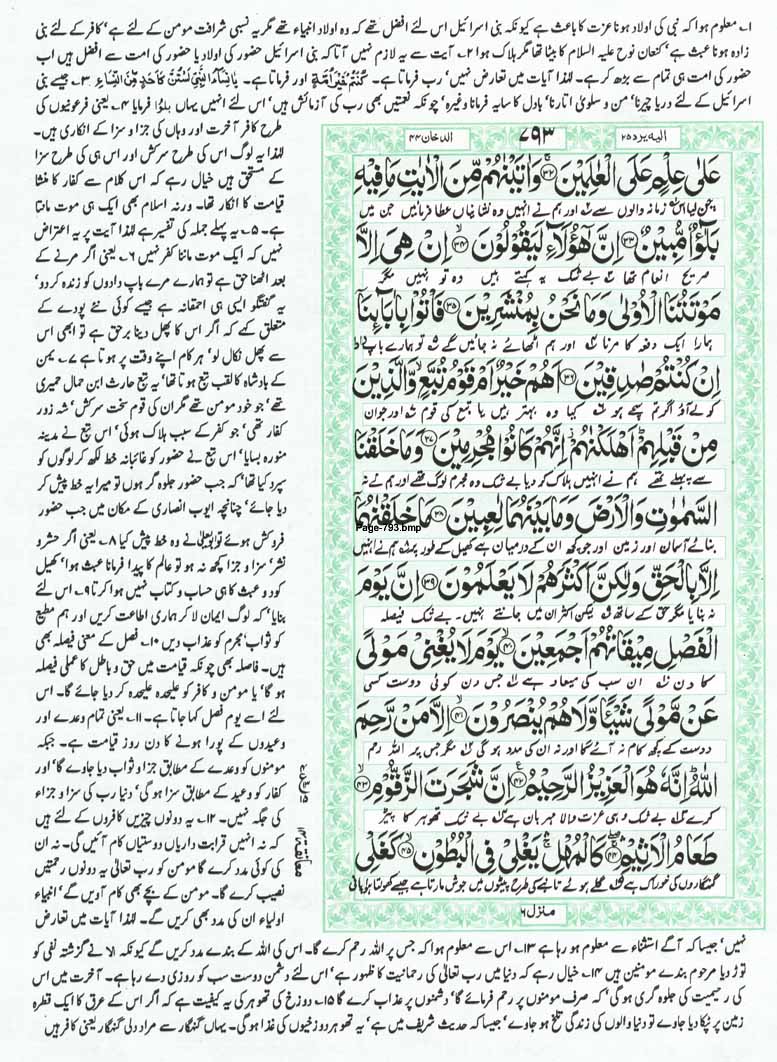 ۱۔ معلوم ہوا کہ نبی کی اولاد ہونا عزت کا باعث ہے کیونکہ بنی اسرائیل اس لئے افضل تھے کہ وہ اولاد انبیاء تھے مگر یہ نسبی شرافت مومن کے لئے ہے' کافر کے لئے نبی
زادہ ہونا عبث ہے' کنعان نوح علیہ السلام کا بیٹا تھا مگر ہلاک ہوا ۲۔ آیت سے یہ لازم نہیں آتا کہ بنی اسرائیل حضور کی اولاد یا حضور کی امت سے افضل ہیں حب
حضور کی امت ہی تمام سے بڑھ کر ہے۔ لہٰذا آیات میں تعارض نہیں' رب فرماتا ہے۔ كُنْتُمْ خَيْرَ اُمَّةٍ اور فرماتا ہے۔ يٰنِسَآءَ النَّبِيِّ لَسْتُنَّ كَاَحَدٍ مِّنَ النِّسَآءِ ۳۔ جیسے بنی
اسرائیل کے لئے دریا چیرنا' من و سلویٰ اتارنا' بادل کا سایہ فرمانا وغیرہ' چونکہ نعمتیں بھی رب کی آزمائش ہیں' اس لئے انہیں یہاں بلٰؤا فرمایا ۴۔ یعنی فرعونیوں کی
طرح کافر آخرت اور وہاں کی جزا و سزا کے انکاری ہیں۔
لہٰذا یہ لوگ اس کی طرح سرکش اور اس ہی کی طرح سزا
کے مستحق ہیں خیال رہے کہ اس کلام سے کفار کا منشا
قیامت کا انکار تھا۔ ورنہ اسلام بھی ایک ہی موت مانتا
ہے۔ ۵۔ یہ پہلے جملہ کی تفسیر ہے لہٰذا آیت پر یہ اعتراض
نہیں کہ ایک موت ماننا کفر نہیں ۶۔ یعنی اگر مرنے کے
بعد اٹھنا حق ہے تو ہمارے مرے باپ دادوں کو زندہ کر دو'
یہ گفتگو ایسی ہی احمقانہ ہے جیسے کوئی نئے پودے کے
متعلق کہے کہ اگر اس کا پھل دینا برحق ہے تو ابھی اس
سے پھل نکال لو' ہر کام اپنے وقت پر ہوتا ہے ۷۔ یمن
کے بادشاہ کا لقب تبع ہوتا تھا' یہ تبع حارث ابن حمال حمیری
تھے' جو خود مومن تھے مگر ان کی قوم سخت سرکش' شہ زور
کفار تھی' جو کفر کے سبب ہلاک ہوئی' اس تبع نے مدینہ
منورہ بسایا' اس تبع نے حضور کو غائبانہ خط لکھ کر لوگوں کو
سپرد کیا تھا' کہ جب حضور جلوہ گر ہوں تو میرا یہ خط پیش کر
دیا جائے' چنانچہ ایوب انصاری کے مکان میں جب حضور
فروکش ہوئے تو ابو یعلیٰ نے وہ خط پیش کیا ۸۔ یعنی اگر حشر و
نشر' سزا و جزا کچھ نہ ہو تو عالم کا پیدا فرمانا عبث ہوا' کھیل
کود و عبث کا ہی حساب و کتاب نہیں ہوا کرتا ۹۔ اس لئے
بنایا' کہ لوگ ایمان لا کر ہماری اطاعت کریں اور ہم مطیع
کو ثواب' مجرم کو عذاب دیں ۱۰۔ فصل کے معنی فیصلہ بھی
ہیں۔ فاصلہ بھی چونکہ قیامت میں حق و باطل کا عملی فیصلہ
ہو گا' یا مومن و کافر کو علیحدہ علیحدہ کر دیا جائے گا۔ اس
لئے اسے یوم فصل کہا جاتا ہے۔ ۱۱۔ یعنی تمام وعدے اور
وعیدوں کے پورا ہونے کا دن روز قیامت ہے۔ جبکہ
مومنوں کو وعدے کے مطابق جزا و ثواب دیا جاوے گا' اور
کفار کو وعید کے مطابق سزا ہو گی' دنیا رب کی سزا و جزاء
کی جگہ نہیں۔ ۱۲۔ یہ دونوں چیزیں کافروں کے لئے ہیں
کہ نہ انہیں قرابت داریاں دوستیاں کام آئیں گی۔ نہ ان
کی کوئی مدد کرے گا مومن کو رب تعالیٰ یہ دونوں رحمتیں
نصیب کرے گا۔ مومن کے بچے بھی کام آویں گے' انبیاء
اولیاء ان کی مدد بھی کریں گے۔ لہٰذا آیات میں تعارض
الیہ یرد ۲۵
۷۹۳
الدخان ۴۴
عَلٰى عِلْمٍ عَلَى الْعٰلَمِيْنَ ۝۳۲ وَاٰتَيْنٰهُمْ مِّنَ الْاٰيٰتِ مَا فِيْهِ
چن لیا اس زمانہ والوں سے اور ہم نے انہیں وہ نشانیاں عطا فرمائیں جن میں
بَلٰٓؤٌا مُّبِيْنٌ ۝۳۳ اِنَّ هٰٓؤُلَآءِ لَيَقُوْلُوْنَ ۝۳۴ اِنْ هِيَ اِلَّا
صریح انعام تھا بے شک یہ کہتے ہیں وہ تو نہیں مگر
مَوْتَتُنَا الْاُوْلٰى وَمَا نَحْنُ بِمُنْشَرِيْنَ ۝۳۵ فَاْتُوْا بِاٰبَآئِنَآ
ہمارا ایک دفعہ کا مرنا اور ہم اٹھائے نہ جائیں گے تو ہمارے باپ دادا
اِنْ كُنْتُمْ صٰدِقِيْنَ ۝۳۶ اَهُمْ خَيْرٌ اَمْ قَوْمُ تُبَّعٍ وَّالَّذِيْنَ
کو لے آؤ اگر تم سچے ہو کیا وہ بہتر ہیں یا تبع کی قوم اور جو ان
مِنْ قَبْلِهِمْ اَهْلَكْنٰهُمْ اِنَّهُمْ كَانُوْا مُجْرِمِيْنَ ۝۳۷ وَمَا خَلَقْنَا
سے پہلے تھے ہم نے انہیں ہلاک کر دیا بے شک وہ مجرم لوگ تھے اور ہم نے نہ
السَّمٰوٰتِ وَالْاَرْضَ وَمَا بَيْنَهُمَا لٰعِبِيْنَ ۝۳۸ مَا خَلَقْنٰهُمَآ
Page-793.bmp
بنائے آسمان اور زمین اور جو کچھ ان کے درمیان ہے کھیل کے طور پر ہم نے انہیں
اِلَّا بِالْحَقِّ وَلٰكِنَّ اَكْثَرَهُمْ لَا يَعْلَمُوْنَ ۝۳۹ اِنَّ يَوْمَ
نہ بنایا مگر حق کے ساتھ لیکن اکثر ان میں جانتے نہیں۔ بے شک فیصلہ
الْفَصْلِ مِيْقَاتُهُمْ اَجْمَعِيْنَ ۝۴۰ يَوْمَ لَا يُغْنِيْ مَوْلًى
کا دن ان سب کی میعاد ہے جس دن کوئی دوست کسی
عَنْ مَّوْلًى شَيْئًا وَّلَا هُمْ يُنْصَرُوْنَ ۝۴۱ اِلَّا مَنْ رَّحِمَ
دوست کے کچھ کام نہ آئے گا اور نہ ان کی مدد ہو گی مگر جس پر اللہ رحم
اللّٰهُ اِنَّهٗ هُوَ الْعَزِيْزُ الرَّحِيْمُ ۝۴۲ اِنَّ شَجَرَتَ الزَّقُّوْمِ ۝۴۳
کرے بے شک وہی عزت والا مہربان ہے بے شک تھوہر کا پیڑ
طَعَامُ الْاَثِيْمِ ۝۴۴ كَالْمُهْلِ يَغْلِيْ فِي الْبُطُوْنِ ۝۴۵ كَغَلْيِ
گنہگاروں کی خوراک ہے گلے ہوئے تانبے کی طرح پیٹوں میں جوش مارتا ہے جیسے کھولتا پانی
منزل ۶
معانقة ۱۳
نہیں' جیسا کہ آگے استثناء سے معلوم ہو رہا ہے ۱۳۔ اس سے معلوم ہوا کہ جس پر اللہ رحم کرے گا۔ اس کی اللہ کے بندے مدد کریں گے کیونکہ الا نے گزشتہ نفی کو
توڑ دیا مرحوم بندے مومنین ہیں ۱۴۔ خیال رہے کہ دنیا میں رب تعالیٰ کی رحمانیت کا ظہور ہے' اس لئے دشمن دوست سب کو روزی دے رہا ہے۔ آخرت میں اس
کی رحیمیت کی جلوہ گری ہو گی' کہ صرف مومنوں پر رحم فرمائے گا' دشمنوں پر عذاب کرے گا ۱۵۔ دوزخ کی تھوہر کی یہ کیفیت ہے کہ اگر اس کے عرق کا ایک قطرہ
زمین پر ٹپکا دیا جاوے تو دنیا والوں کی زندگی تلخ ہو جاوے' جیسا کہ حدیث شریف میں ہے' یہ تھوہر دوزخیوں کی غذا ہو گی۔ یہاں گنہگار سے مراد دلی گنہگار یعنی کافر ہیں